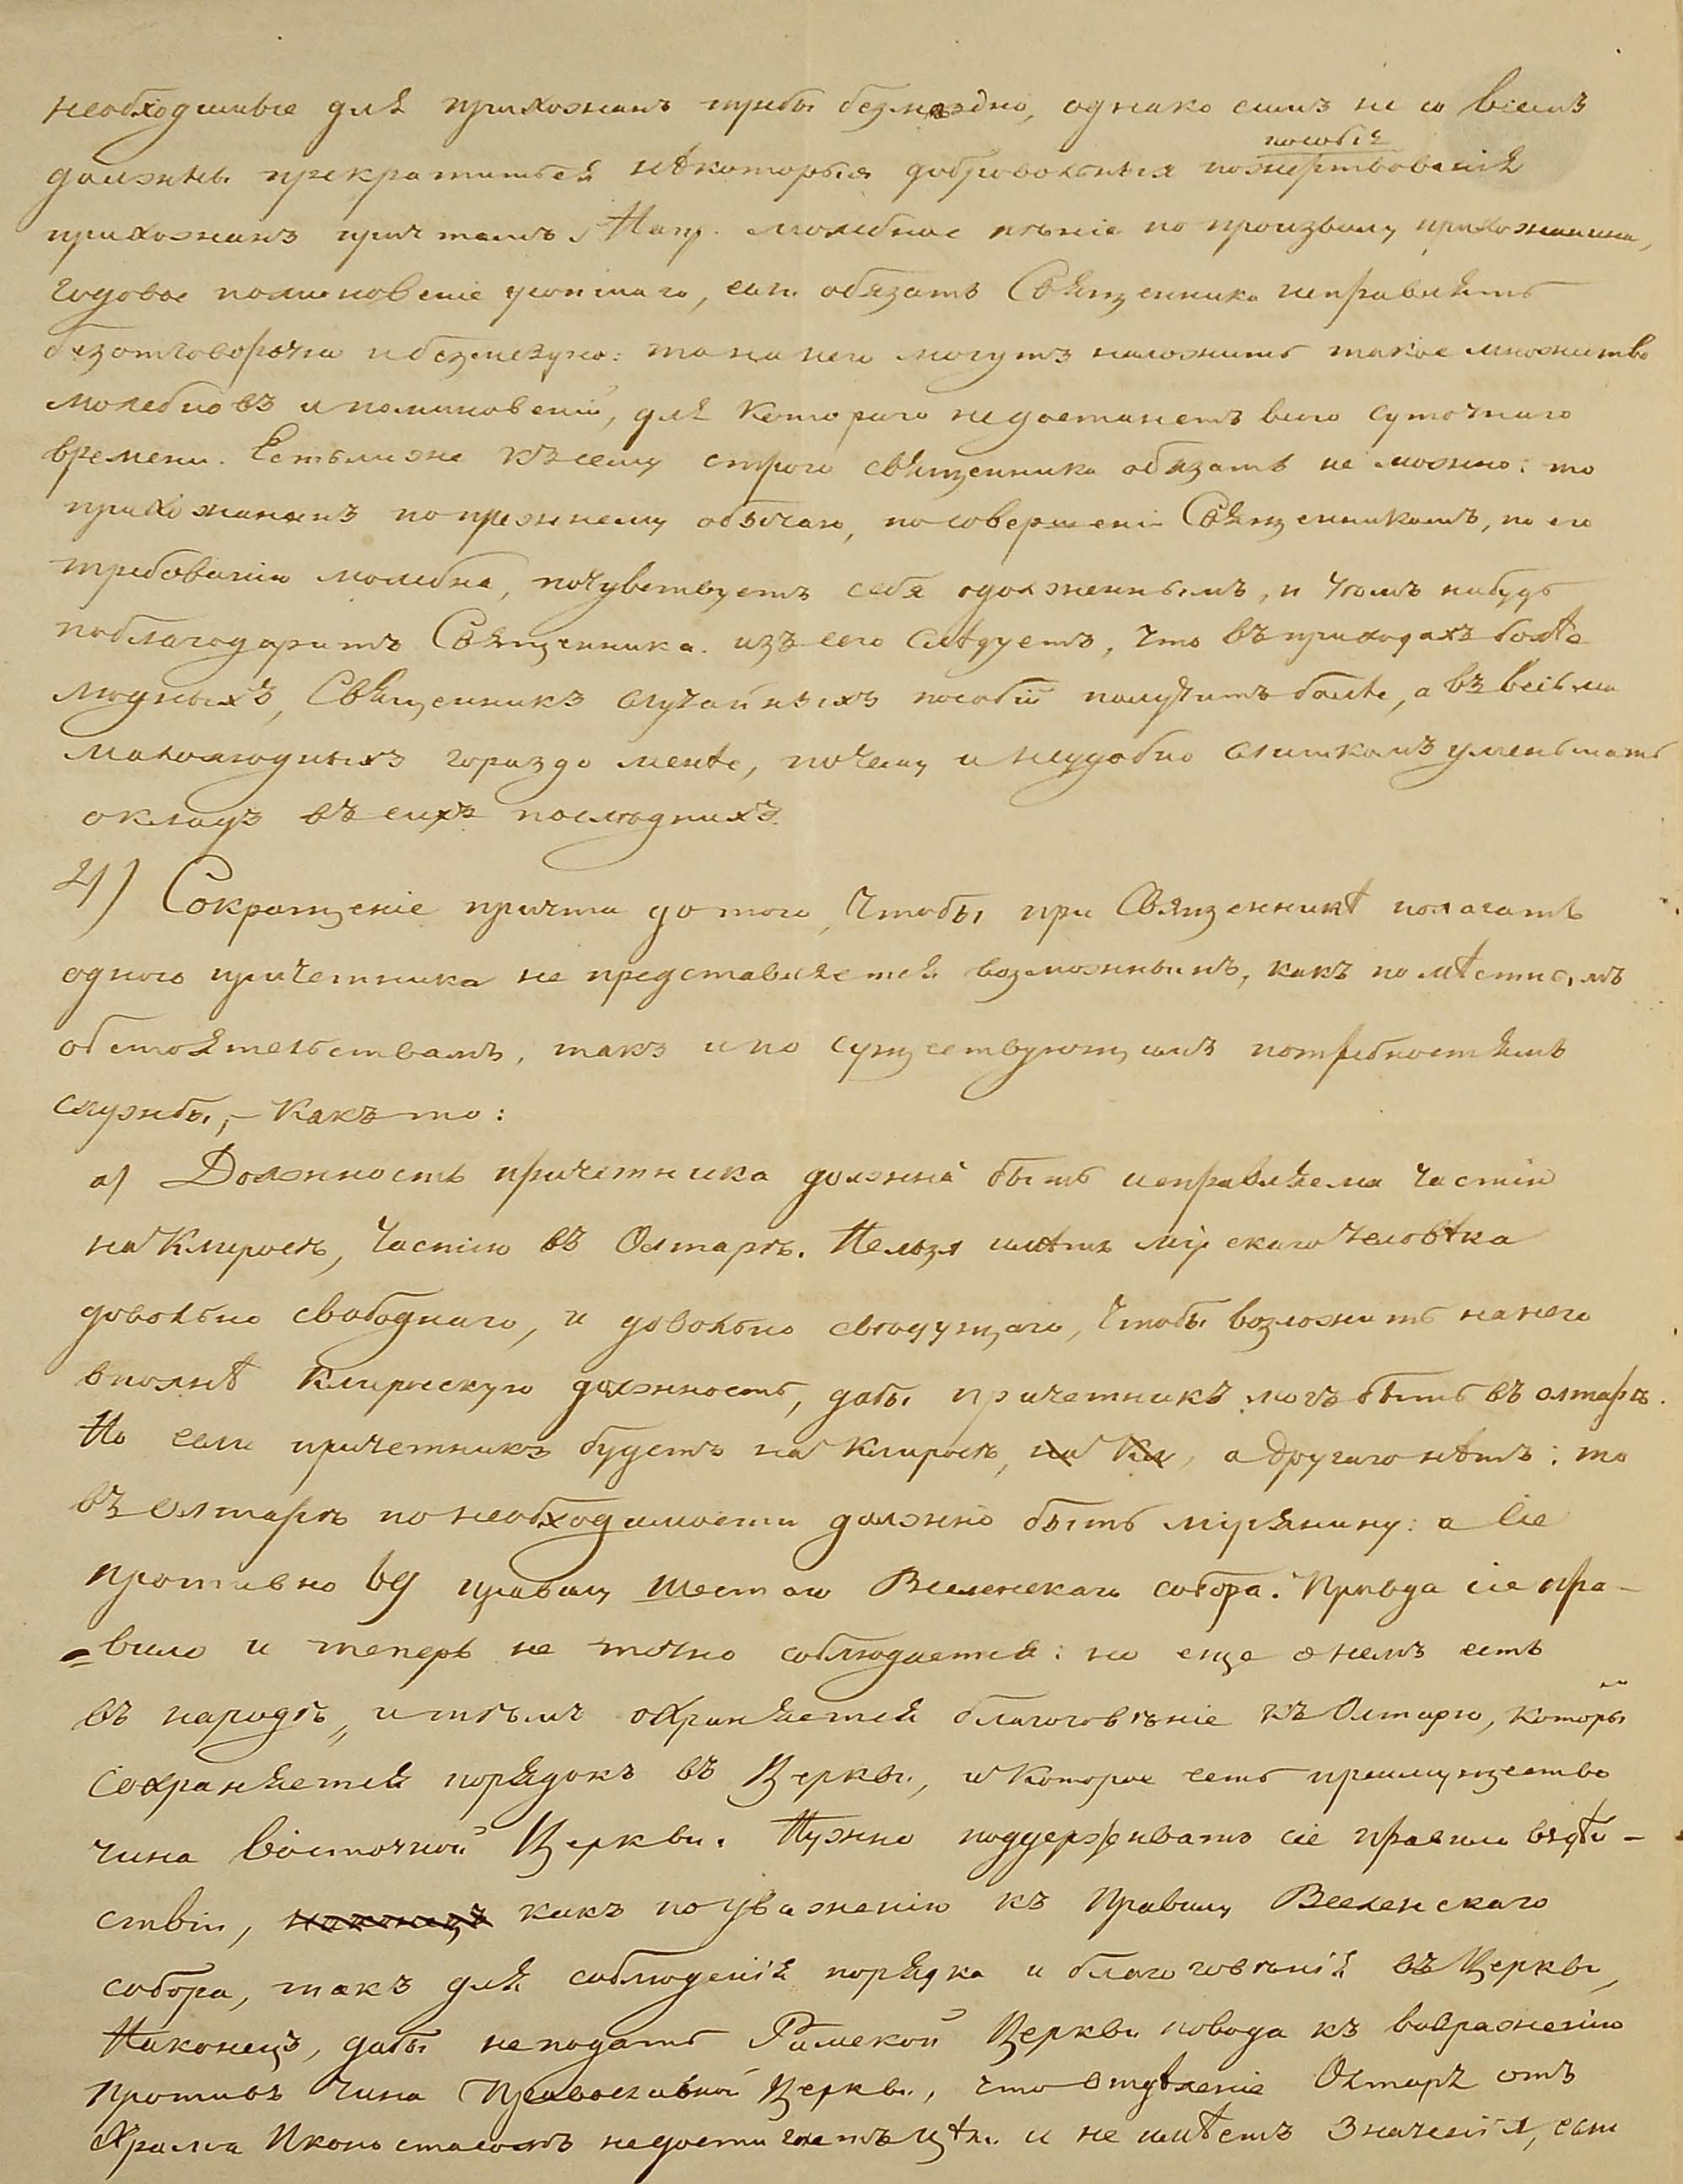 необходимые для прихожанъ требы безмездно, однако симъ не со всемъ
должны прекратиться нѣкоторыя добровольныя пособія пожертвованія
прихожанъ причтамъ. Напр. молебное пѣніе по произволу прихожанина,
годовое поминовеніе усопшаго, если обязать Священника исправлять
безотговорочно и безмездно: то на него могутъ наложить такое множество
молебновъ и поминовеній, для котораго недостанетъ всего суточнаго
времени. Естьли же къ сему строго священника обязать не можно: то
прихожанинъ по прежнему обычаю, по совершеніи Священникомъ, по его
требованію молебна, почувствуетъ себя одолженнымъ, и чѣмъ нибудь
поблагодаритъ Священника. изъ сего слѣдуетъ, что въ приходахъ болѣе
людныхъ, Священникъ случайныхъ пособій получитъ болѣе, а въ весьма
малолюдныхъ гораздо менѣе, почему и неудобно слишкомъ уменьшать
окладъ въ сихъ послѣднихъ.
2) Сокращеніе причта до того, чтобы при Священникѣ полагать
одного причетника не представляется возможнымъ, какъ по мѣстнымъ
обстоятельствамъ, такъ и по существующимъ потребностямъ
службы, – какъ то:
а) Должность причетника должна быть исправляема частію
на Клиросѣ, частію въ Олтарѣ. Нельзя имѣть мірскаго человѣка
довольно свободнаго, и довольно свѣдущаго, чтобы возложить на него
вполнѣ клиросскую должность, дабы причетникъ могъ быть въ олтарѣ.
Но если причетникъ будетъ на Клиросѣ, на Кл, а другаго нѣтъ: то
въ Олтарѣ по необходимости должно быть мірянину: а сіе
противно 69 правилу Шестаго Вселенскаго собора. Правда сіе пра-
=вило и теперь не точно соблюдается: но еще о немъ есть
въ народѣ, и тѣмъ охраняется благоговѣніе къ Олтарю, которымъ
сохраняется порядокъ въ Церкви, и которое есть преимущество
чина Восточной Церкви. Нужно поддерживать сіе правило въ дѣй-
ствіи, наконецъ какъ по уваженію къ Правилу Вселенскаго
собора, такъ для соблюденія порядка и благоговѣнія въ Церкви,
Наконецъ, дабы не подать Римской Церкви повода къ возраженію
противъ чина Православной Церкви, что отдѣленіе Олтаря отъ
Храма Иконостасомъ недостигаетъ цѣли и не имѣетъ значенія, если